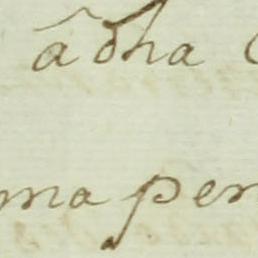 âdha
ma pen